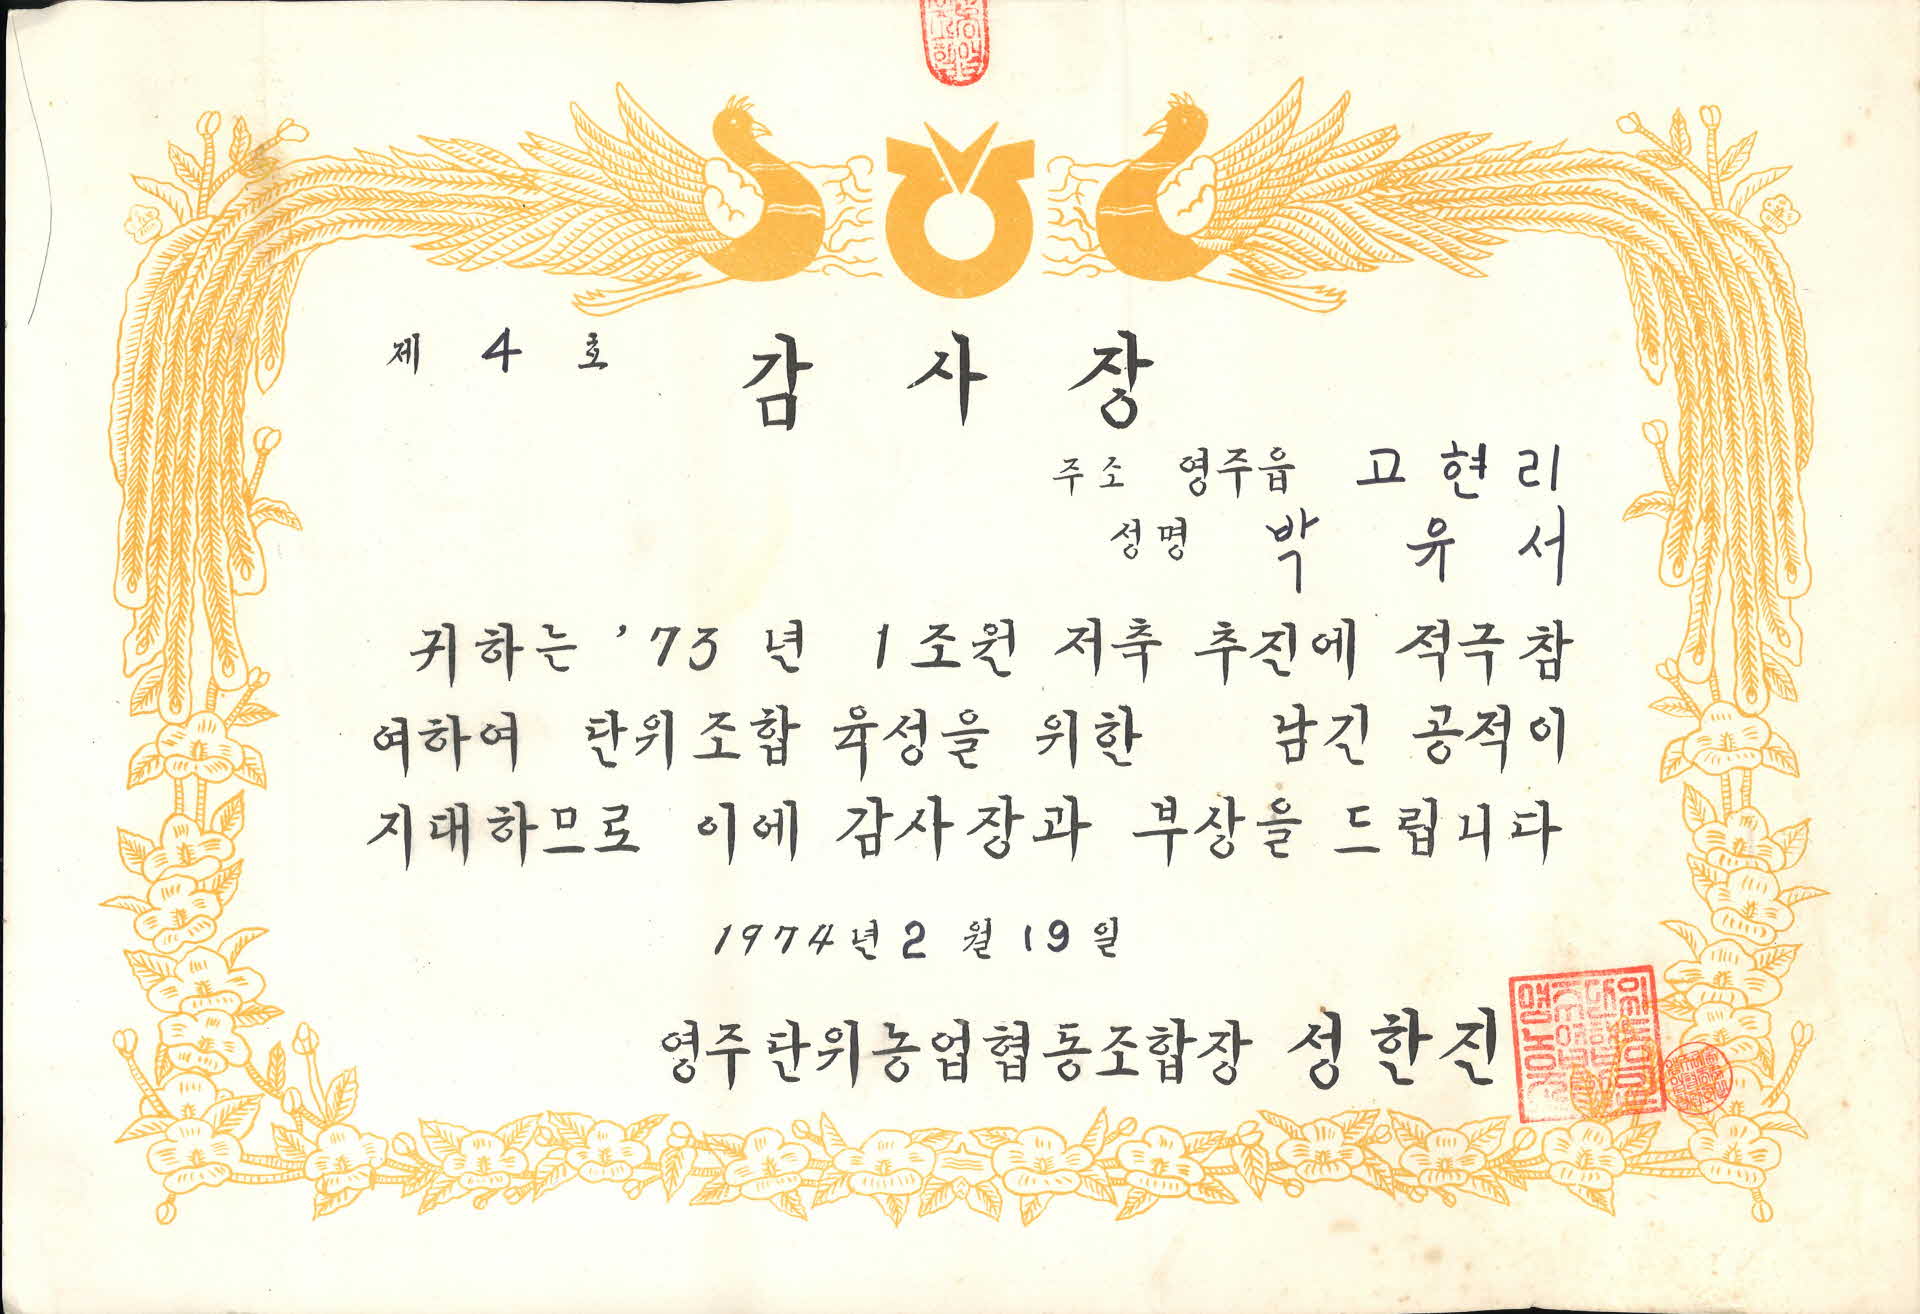 제 4 호 감 사 장
주소 영주읍 고현리
성명 박 유 서
귀하는 '73 년 1조원 저축 추진에 적극참
여하여 단위조합 육성을 위한 남긴 공적이
지대하므로 이에 감사장과 부상을 드립니다
1974년 2 월 19 일
영주단위농업협동조합장 성한진